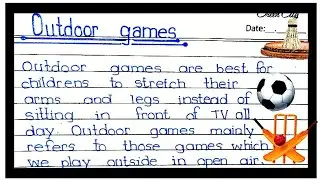 Outdoor games
Date:
Outdoor games are best for
childrens to stretch their
arms and legs instead of
sitting in front of TV all
day. Outdoor games mainly
refers to those games which
we play outside in open air.